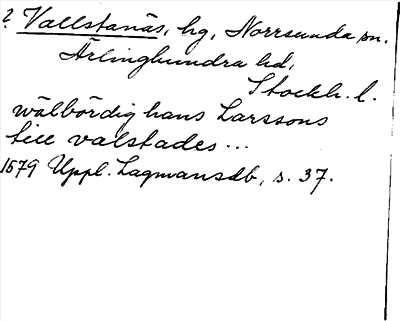 ? Vallstanäs, hg, Norrsunda sn.
Ärlinghundra hd,
Stockh. l.
wälbördig hans Larssons
till valstades ...
1579 Uppl. Lagmansdb, s. 37.